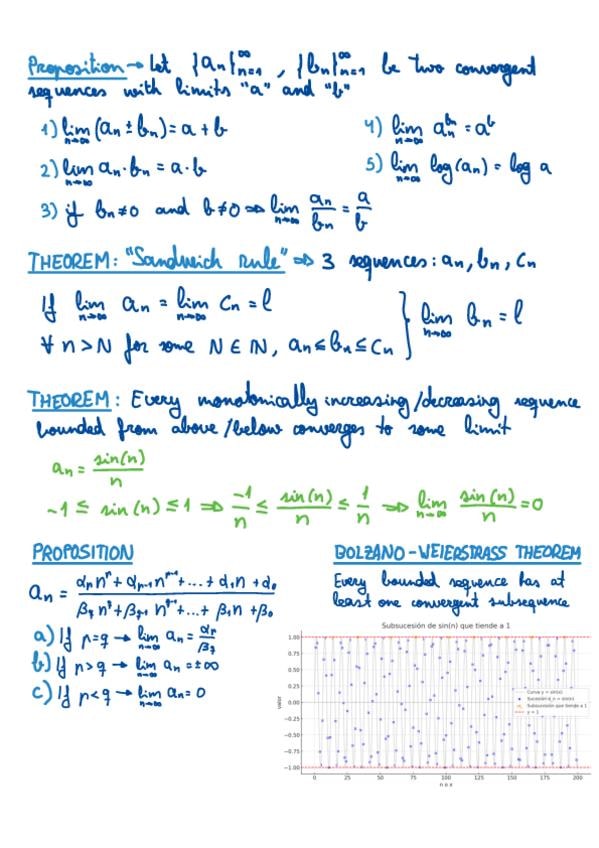 Proposition → Let {aₙ}ₙ₌₁^∞ , {bₙ}ₙ₌₁^∞ be two convergent
sequences with limits "a" and "b"
1) lim n→∞ (aₙ ± bₙ) = a + b
4) lim n→∞ aₙ^bₙ = a^b
2) lim n→∞ aₙ · bₙ = a · b
5) lim n→∞ log(aₙ) = log a
3) if bₙ ≠ 0 and b ≠ 0 ⇒ lim n→∞ aₙ/bₙ = a/b
THEOREM: "Sandweich rule" ⇒ 3 sequences: aₙ, bₙ, cₙ
If lim n→∞ aₙ = lim n→∞ cₙ = l
∀ n > N for some N ∈ ℕ, aₙ ≤ bₙ ≤ cₙ
} lim n→∞ bₙ = l
THEOREM: Every monotonically increasing/decreasing sequence
bounded from above/below converges to some limit
aₙ = sin(n)/n
-1 ≤ sin(n) ≤ 1 ⇒ -1/n ≤ sin(n)/n ≤ 1/n ⇒ lim n→∞ sin(n)/n = 0
PROPOSITION
aₙ = (αₚ nᵖ + αₚ₋₁ nᵖ⁻¹ + ... + α₁n + α₀) / (β_q n^q + β_q-1 n^q-1 + ... + β₁n + β₀)
a) If p = q → lim n→∞ aₙ = αₚ/β_q
b) If p > q → lim n→∞ aₙ = ±∞
c) If p < q → lim n→∞ aₙ = 0
BOLZANO-WEIERSTRASS THEOREM
Every bounded sequence has at
least one convergent subsequence
Subsucesión de sin(n) que tiende a 1
valor
1.00
0.75
0.50
0.25
0.00
−0.25
−0.50
−0.75
−1.00
Curva y = sin(x)
Sucesión a_n = sin(n)
Subsucesión que tiende a 1
y = 1
0 25 50 75 100 125 150 175 200
n o x